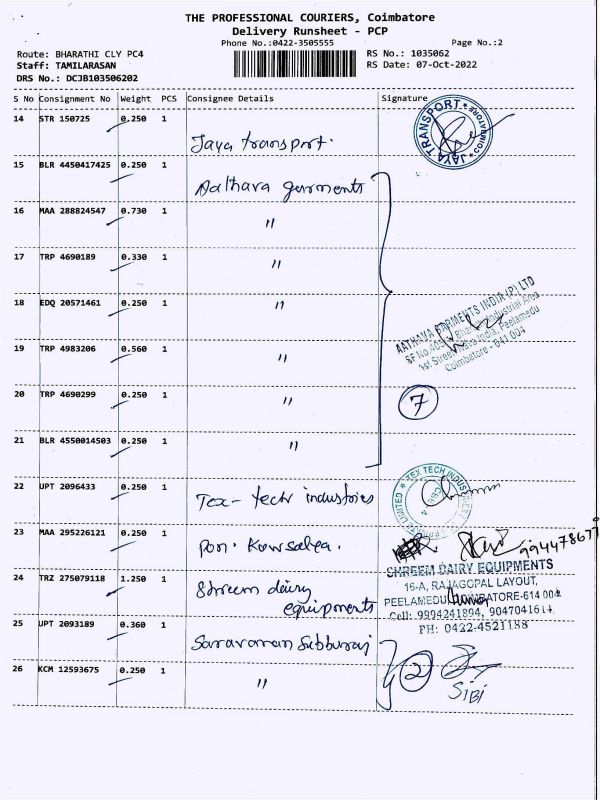 THE PROFESSIONAL COURIERS, Coimbatore
Delivery Runsheet - PCP
Phone No.:0422-3505555
Page No.:2
Route: BHARATHI CLY PC4
RS No.: 1035062
Staff: TAMILARASAN
RS Date: 07-Oct-2022
DRS No.: DCJB103506202
S No Consignment No Weight PCS Consignee Details Signature
14 STR 150725 0.250 1
Jaya transport.
JAYA TRANSPORT * COIMBATORE *
15 BLR 4450417425 0.250 1
Aathava garments
16 MAA 288824547 0.730 1
"
17 TRP 4690189 0.330 1
"
18 EDQ 20571461 0.250 1
"
AATHAVA GARMENTS INDIA (P) LTD
SF No.405
Industrial Area
1st Street
India, Peelamedu
Coimbatore - 641 004
19 TRP 4983206 0.560 1
"
20 TRP 4690299 0.250 1
"
7
21 BLR 4550014503 0.250 1
"
22 UPT 2096433 0.250 1
Tex-tech industries
TEX TECH INDUSTRIES
LIMITED
CBE - 4
23 MAA 295226121 0.250 1
Pon. Kowsalya.
24 TRZ 275079118 1.250 1
Shreem dairy
equipments
SHREEM DAIRY EQUIPMENTS
16-A, RAJAGOPAL LAYOUT,
PEELAMEDU, COIMBATORE-614 004
Cell: 9994241894, 9047041614,
PH: 0422-4521188
25 UPT 2093189 0.360 1
Saravanan Subburaj
26 KCM 12593675 0.250 1
"
2
SIBI